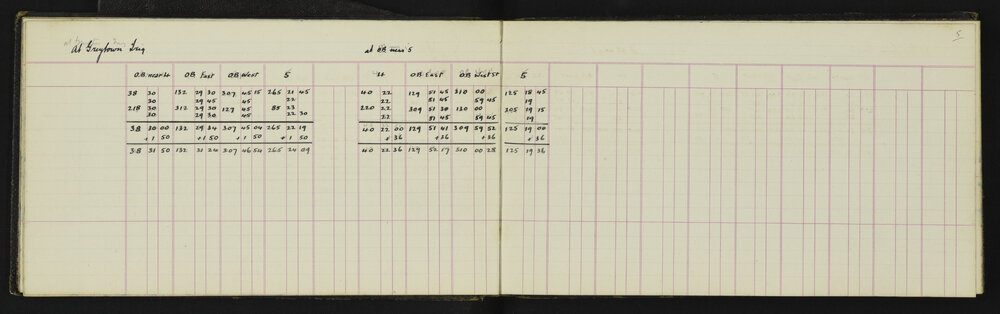 5
At Greytown Trig
at OB near 5
OB near 4 OB East OB West 5 4 OB East OB West St 5
38 30 132 29 30 307 45 15 265 21 45 40 22 129 51 45 310 00 125 18 45
30 29 45 45 22 22 51 45 59 45 19
218 30 312 29 30 127 45 85 23 220 22 309 51 30 130 00 305 19 15
30 29 30 45 22 30 22 51 45 59 45 19
38 30 00 132 29 34 307 45 04 265 22 19 40 22 00 129 51 41 309 59 52 125 19 00
+1 50 +1 50 +1 50 +1 50 +36 +36 +36 +36
38 31 50 132 31 24 307 46 54 265 24 09 40 22 36 129 52 17 310 00 28 125 19 36